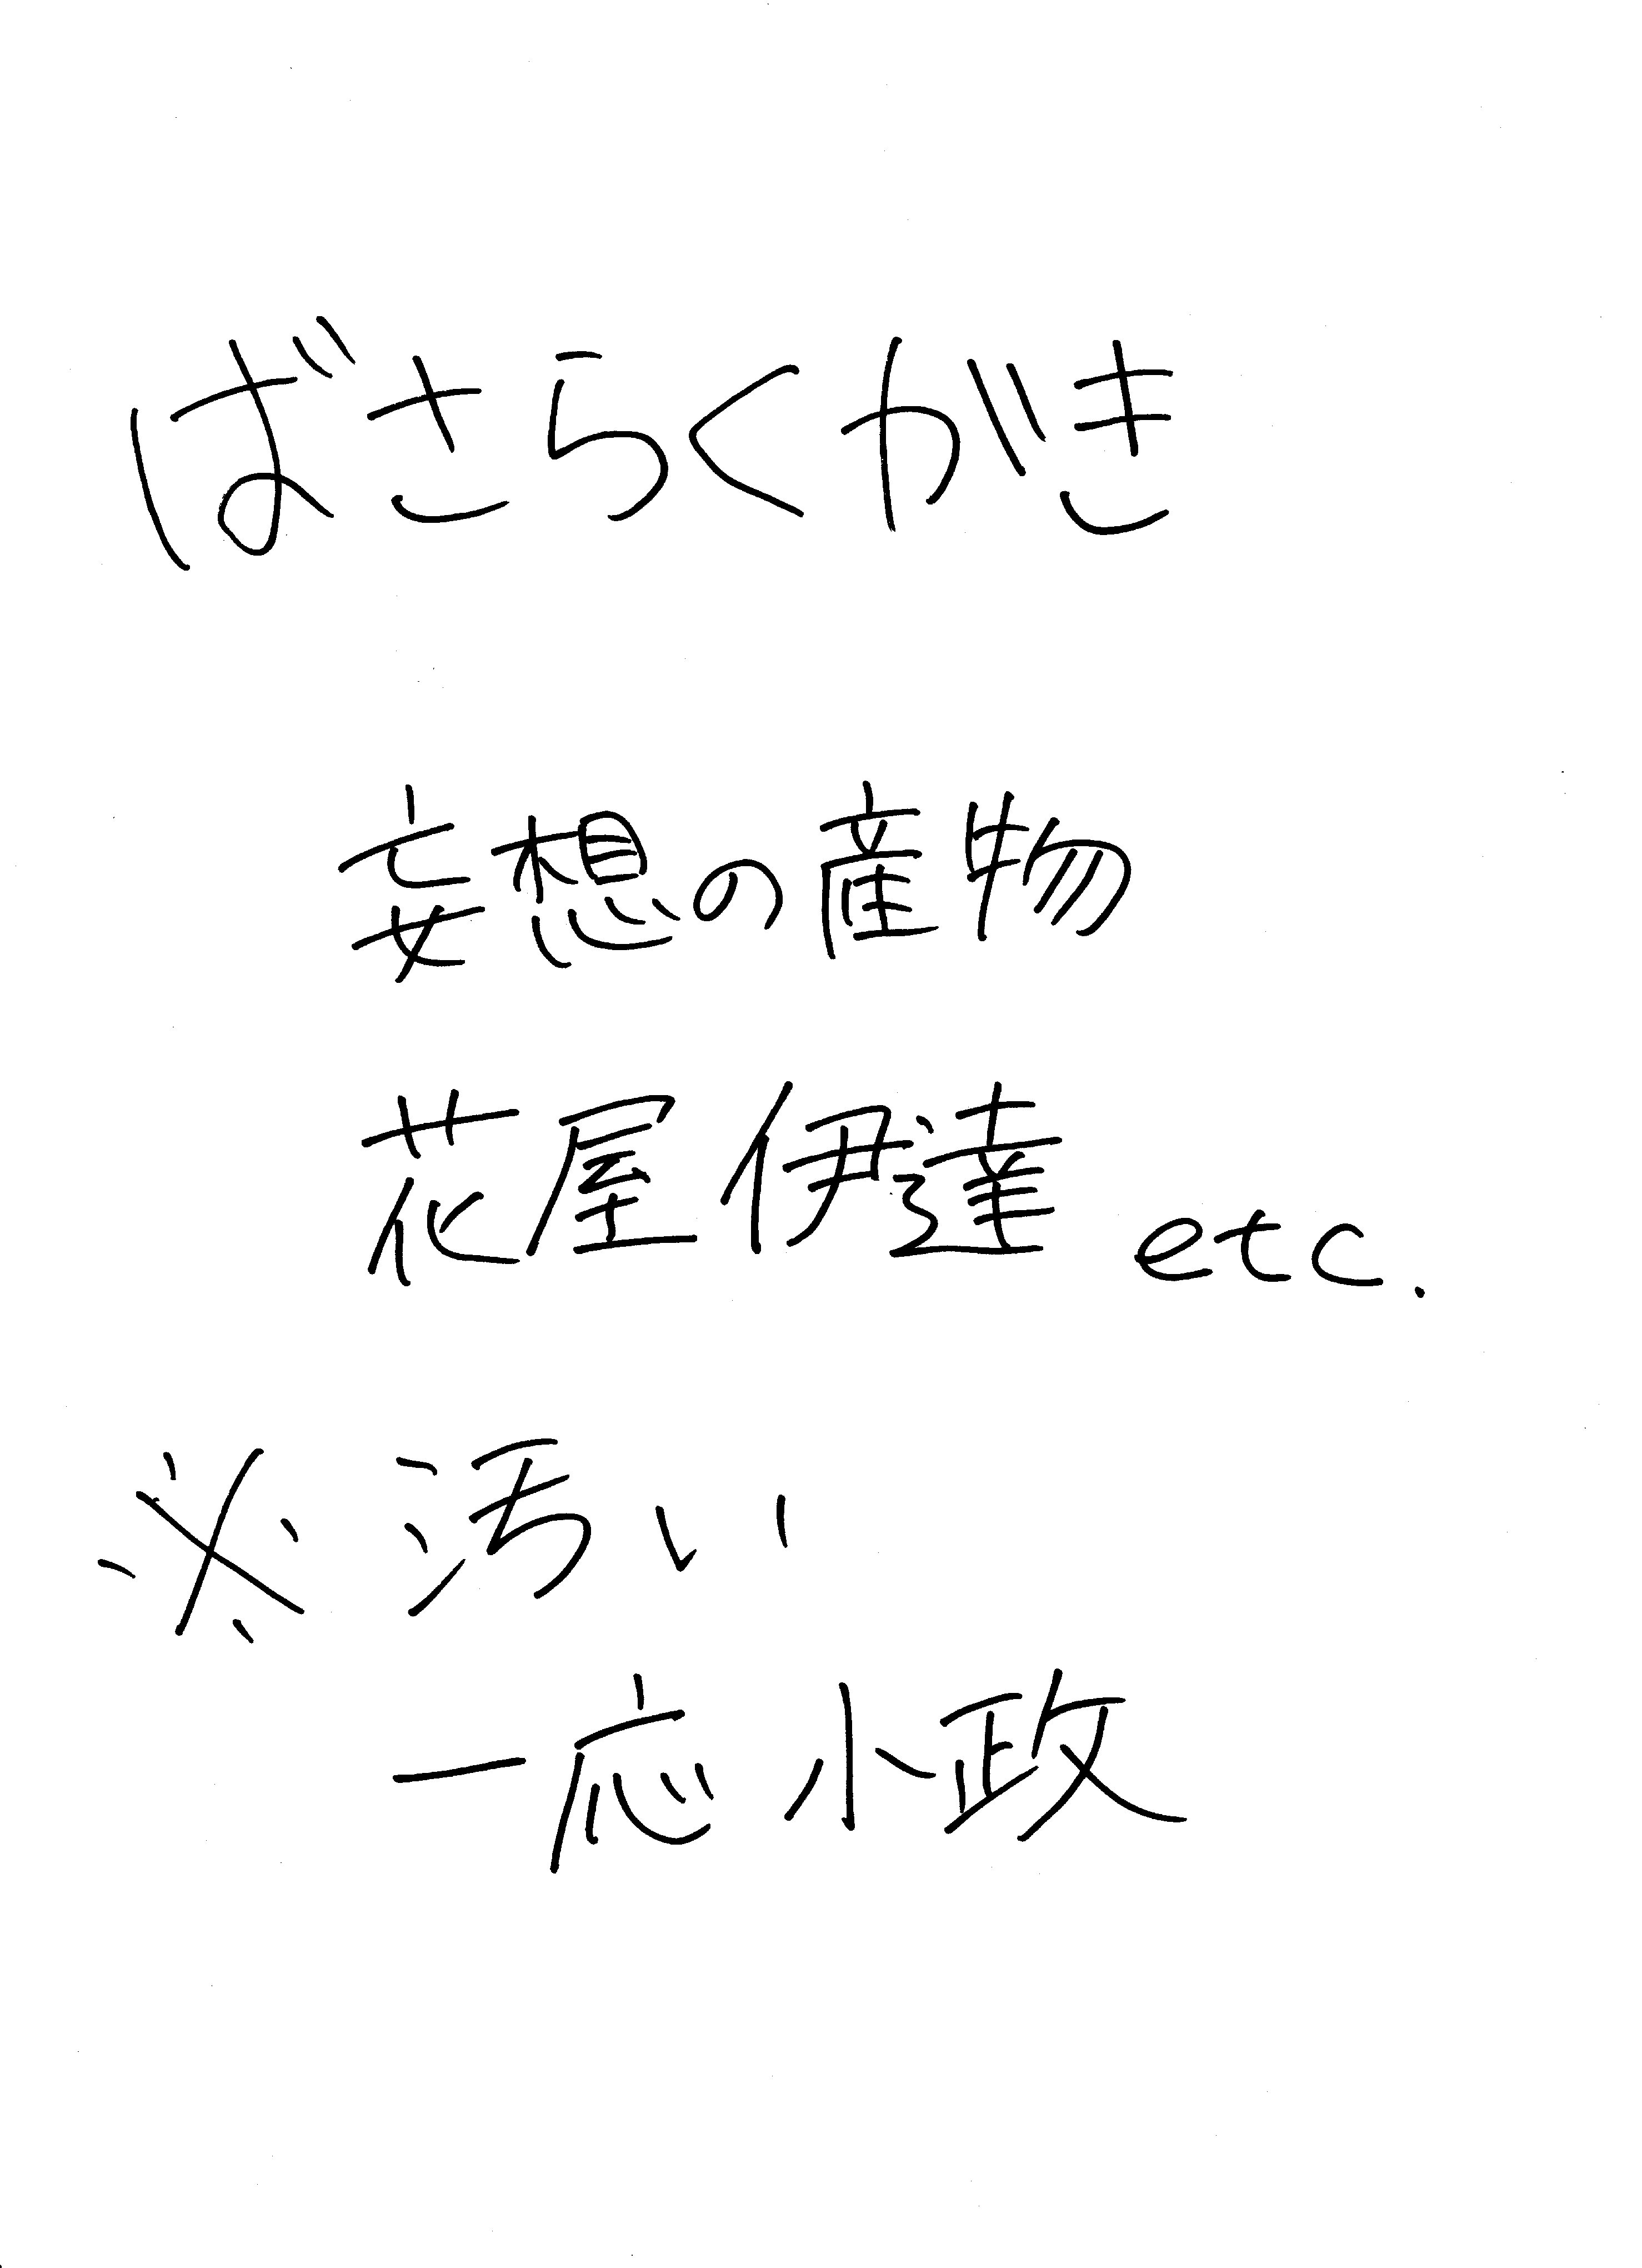 ばさらくがき
妄想の産物
花屋伊達 etc.
※ 汚い
一応小政